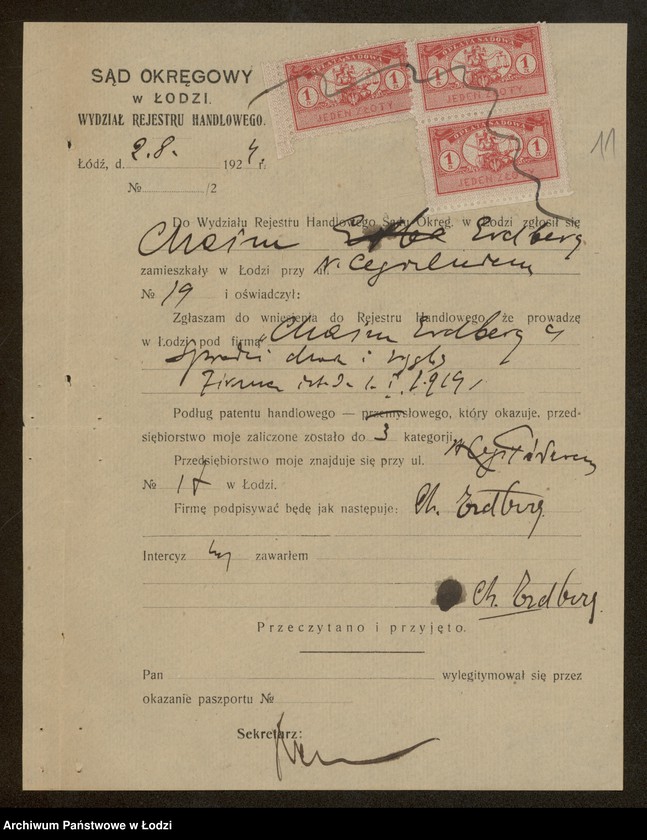 SĄD OKRĘGOWY
w ŁODZI.
WYDZIAŁ REJESTRU HANDLOWEGO.
OPŁATA SĄDOWA
1 1
JEDEN ZŁOTY
OPŁATA SĄDOWA
1 1
JEDEN ZŁOTY
OPŁATA SĄDOWA
1 1
JEDEN ZŁOTY
11
Łódź, d. 2.8. 1924 r.
№ /2
Do Wydziału Rejestru Handlowego Sądu Okręg. w Łodzi zgłosił się
Chaim Erdberg
zamieszkały w Łodzi przy ul.
№ 19 i oświadczył:
Zgłaszam do wniesienia do Rejestru Handlowego, że prowadzę
w Łodzi pod firmą „Chaim Erdberg
i
1919
Podług patentu handlowego — przemysłowego, który okazuje, przed-
siębiorstwo moje zaliczone zostało do 3 kategorji.
Przedsiębiorstwo moje znajduje się przy ul.
№ 17 w Łodzi.
Firmę podpisywać będę jak następuje: Ch. Erdberg
Intercyz zawarłem
Ch. Erdberg.
Przeczytano i przyjęto.
Pan wylegitymował się przez
okazanie paszportu №
Sekretarz:
Archiwum Państwowe w Łodzi